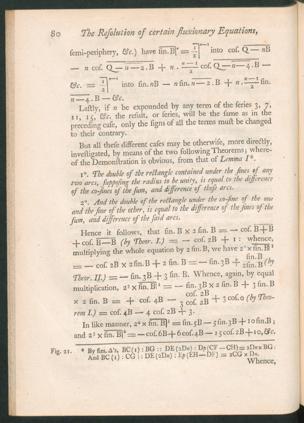 80 The Resolution of certain fluxionary Equations,
semi-periphery, &c.) have sin. B|ⁿ = 1/2|ⁿ⁻¹ into cos. Q — nB
— n cos. Q — n—2 . B + n . n—1/2 cos. Q — n—4 . B —
&c. = 1/2|ⁿ⁻¹ into sin. nB — n sin. n—2 . B + n . n—1/2 sin.
n—4 . B — &c.
Lastly, if n be expounded by any term of the series 3, 7,
11, 15, &c. the result, or series, will be the same as in the
preceding case, only the signs of all the terms must be changed
to their contrary.
But all these different cases may be otherwise, more directly,
investigated, by means of the two following Theorems; where-
of the Demonstration is obvious, from that of Lemma I*.
1°. The double of the rectangle contained under the sines of any
two arcs, supposing the radius to be unity, is equal to the difference
of the co-sines of the sum, and difference of those arcs.
2°. And the double of the rectangle under the co-sine of the one
and the sine of the other, is equal to the difference of the sines of the
sum, and difference of the said arcs.
Hence it follows, that sin. B × 2 sin. B = — cos. B+B
+ cos. B—B (by Theor. I.) = — cos. 2B + 1: whence,
multiplying the whole equation by 2 sin. B, we have 2² × sin. B|³
= — cos. 2B × 2 sin. B + 2 sin. B = — sin. 3B + sin. B/2 sin. B (by
Theor. II.) = — sin. 3B + 3 sin. B. Whence, again, by equal
multiplication, 2³ × sin. B|⁴ = — sin. 3B × 2 sin. B + 3 sin. B
× 2 sin. B = + cos. 4B — cos. 2B/3 cos. 2B + 3 cos. 0 (by Theo-
rem I.) = cos. 4B — 4 cos. 2B + 3.
In like manner, 2⁴ × sin. B|⁵ = sin. 5B — 5 sin. 3B + 10 sin. B;
and 2⁵ × sin. B|⁶ = — cos. 6B + 6 cos. 4B — 15 cos. 2B + 10, &c.
Fig. 21. * By sim. Δ's, BC (1) : BG :: DE (2Dn) : Dp (CF — CH) = 2Dn × BG :
And BC (1) : CG :: DE (2Dn) : Ep (EH — DF) = 2CG × Dn.
Whence,